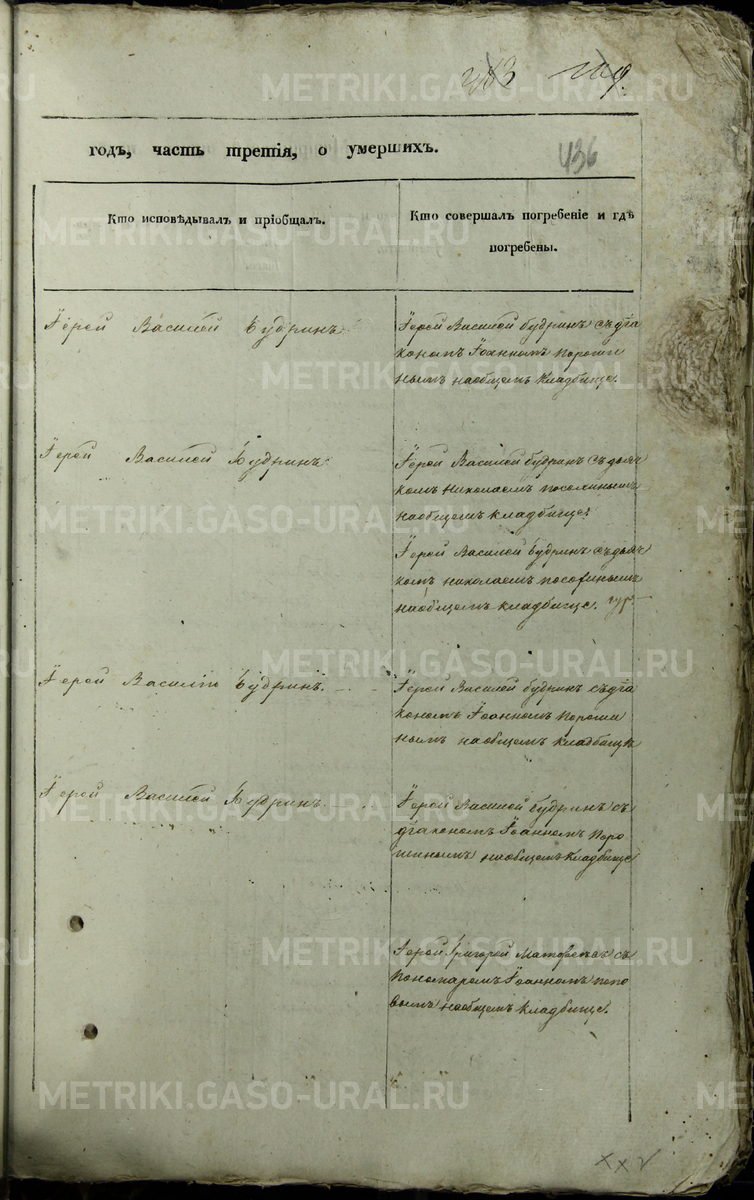 283
годъ, часть третія, о умершихъ.
436
Кто исповѣдывалъ и пріобщалъ.
Кто совершалъ погребеніе и гдѣ
погребены.
Іерей Василей Будринъ
Іерей Василей будринъ съ діа
кономъ Іоанномъ Пороши
нымъ наобщемъ кладбище.
Іерей Василей Будринъ
Іерей Василей будринъ съ дьяч
комъ Николаемъ
наобщемъ кладбище.
Іерей Василей будринъ съ дьяч
комъ николаемъ
наобщемъ кладбище.
Іерей Василій Будринъ.
Іерей Василей будринъ съ діа
кономъ Іоанномъ Пороши
нымъ наобщемъ кладбищѣ
Іерей Василей Будринъ
Іерей Василей будринъ съ
діакономъ Іоанномъ Поро
шинымъ наобщемъ кладбище
Іерей Григорей съ
Пономаремъ Іоанномъ попо
вымъ наобщемъ кладбище.
XXV
METRIKI.GASO-URAL.RU